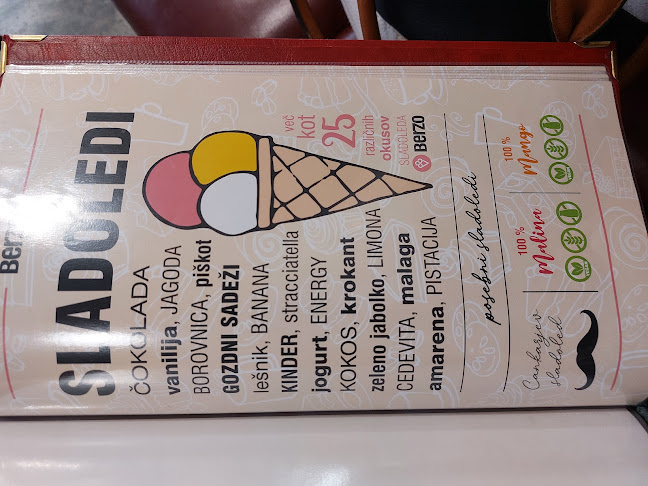 Berzo
SLADOLEDI
ČOKOLADA
vanilija, JAGODA
BOROVNICA, piškot
GOZDNI SADEŽI
lešnik, BANANA
KINDER, stracciatella
jogurt, ENERGY
KOKOS, krokant
zeleno jabolko, LIMONA
CEDEVITA, malaga
amarena, PISTACIJA
več
kot
25
različnih
okusov
SLADOLEDA
BERZO
posebni sladoledi
Cankarjev
sladoled
100 %
Malina
100 %
Mango